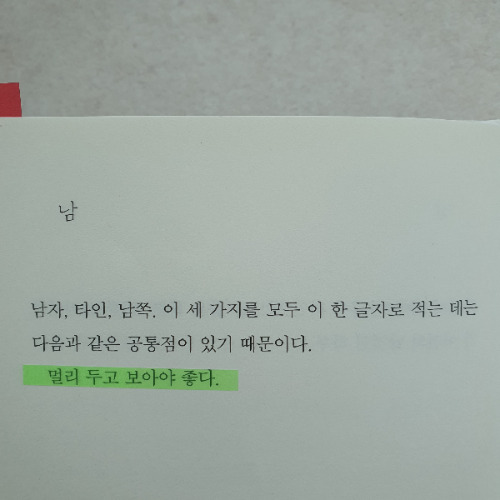 남
남자, 타인, 남쪽. 이 세 가지를 모두 이 한 글자로 적는 데는
다음과 같은 공통점이 있기 때문이다.
멀리 두고 보아야 좋다.